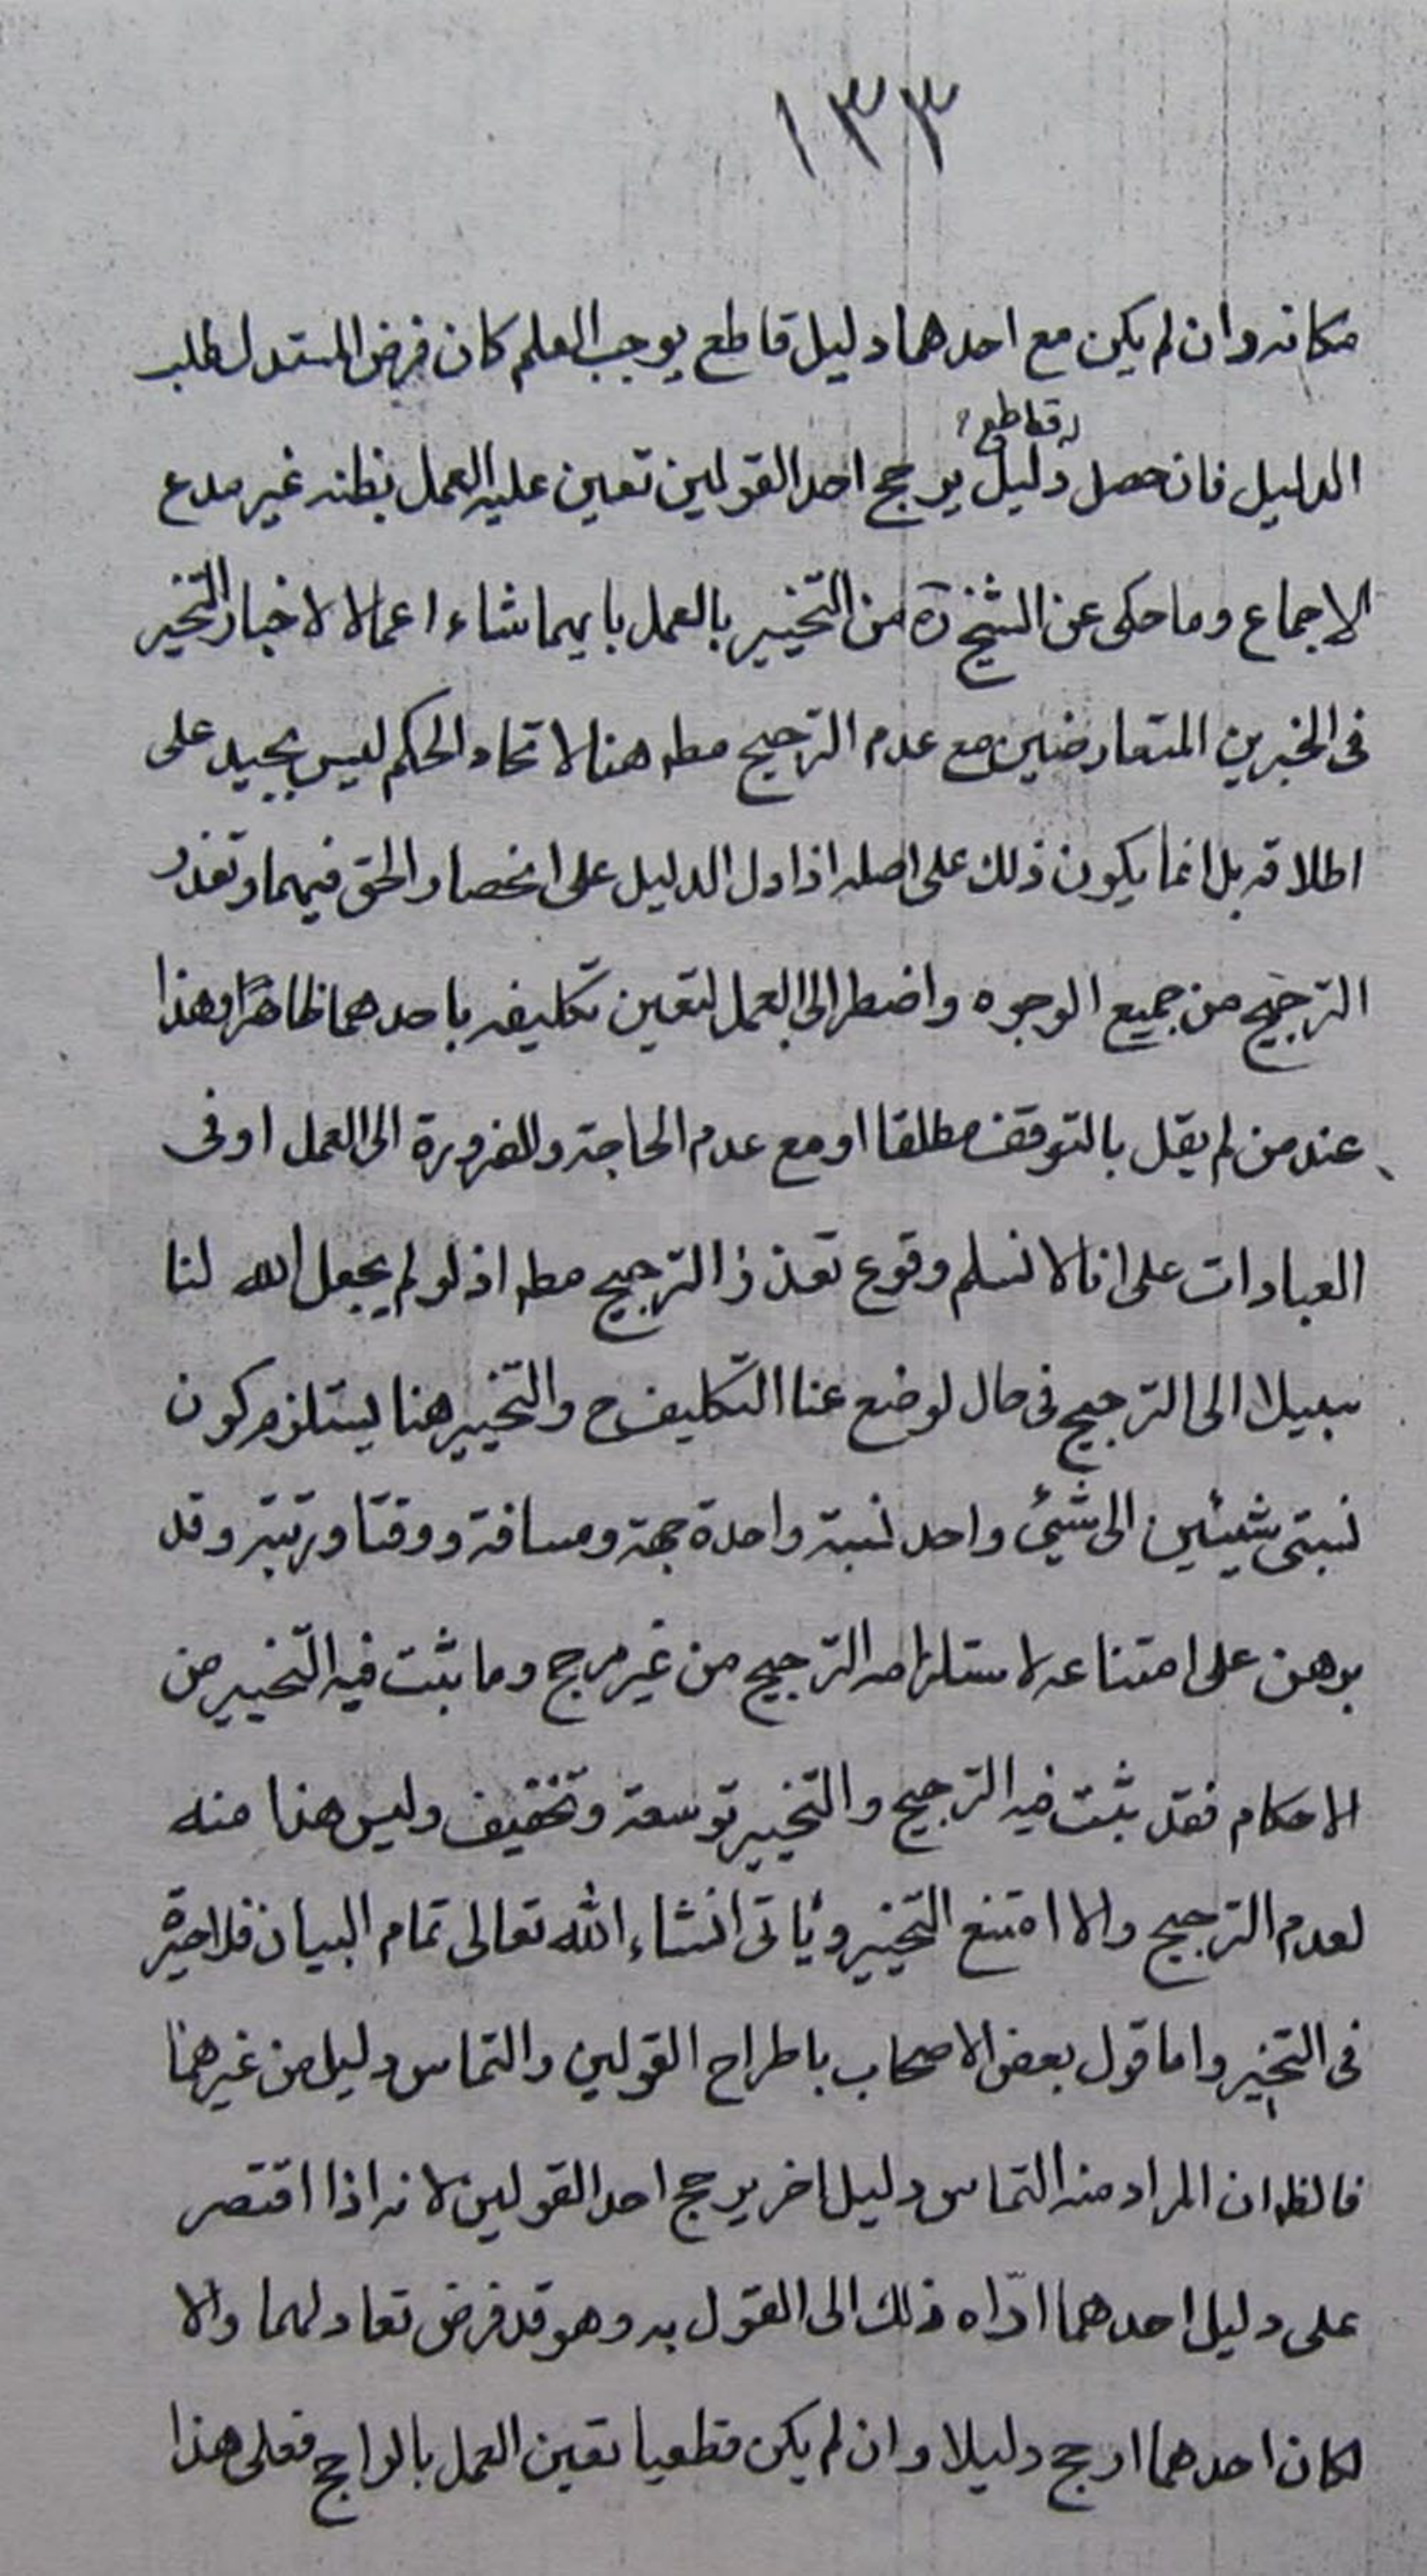 ١٣٣
مكانه وان لم يكن مع احدهما دليل قاطع يوجب العلم كان فرض المستدل طلب
قاطع؟
الدليل فان حصل دليل يرجح احد القولين تعين عليه العمل بظنه غير مدع
الاجماع وما حكى عن الشيخ ره من التخيير بالعمل بايهما شاء اعمالا لاخبار التخيير
فى الخبرين المتعارضين مع عدم الترجيح مطه هنا لاتحاد الحكم ليس بجيد على
اطلاقه بل انما يكون ذلك على اصله اذا دل الدليل على انحصار الحق فيهما وتعذر
الترجيح من جميع الوجوه واضطر الى العمل لتعين تكليفه باحدهما ظاهرًا وهذا
عند من لم يقل بالتوقف مطلقا او مع عدم الحاجة والضرورة الى العمل او فى
العبادات على انا لا نسلم وقوع تعذر الترجيح مطه اذ لو لم يجعل الله لنا
سبيلا الى الترجيح فى حال لوضع عنا التكليف ح والتخيير هنا يستلزم كون
نسبتى شيئين الى شيئ واحد نسبة واحدة جهة ومسافة ووقتا ورتبة وقد
برهن على امتناعه لاستلزامه الترجيح من غير مرجح وما ثبت فيه التخيير من
الاحكام فقد ثبت فيه الترجيح والتخيير توسعة وتخفيف وليس هذا منه
لعدم الترجيح والا امتنع التخيير ويأتى انشاء الله تعالى تمام البيان فلا حيرة
فى التخيير واما قول بعض الاصحاب باطراح القولين والتماس دليل من غيرهما
فالظه ان المراد منه التماس دليل اخر يرجح احد القولين لانه اذا اقتصر
على دليل احدهما ادّاه ذلك الى القول به وهو قد فرض تعادلهما والا
لكان احدهما ارجح دليلا وان لم يكن قطعيا تعين العمل بالراجح فعلى هذا